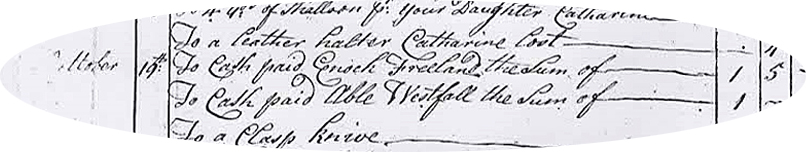 To 4 yds of Shalloon pr. your Daughter Catharine
To a leather halter Catharine lost 4
October 19th. To Cash paid Enoch Freeland the Sum of 1 5
To Cash paid Able Westfall the Sum of 1
To a Clasp knive